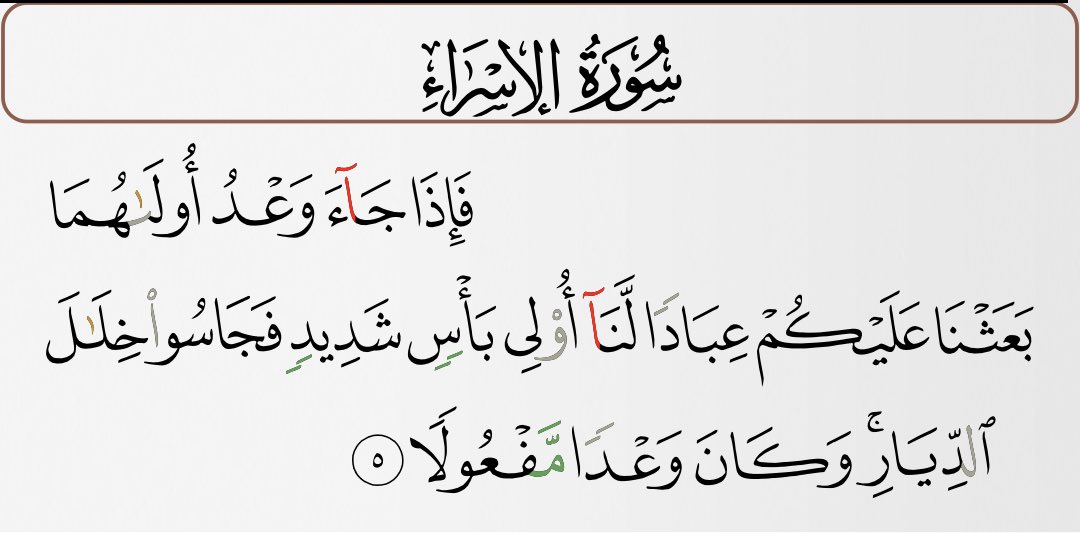 سُورَةُ الإِسْرَاءِ
فَإِذَا جَآءَ وَعْدُ أُولَىٰهُمَا
بَعَثْنَا عَلَيْكُمْ عِبَادًا لَّنَآ أُوْلِى بَأْسٍ شَدِيدٍ فَجَاسُوا۟ خِلَـٰلَ
ٱلدِّيَارِ ۚ وَكَانَ وَعْدًا مَّفْعُولًا ٥